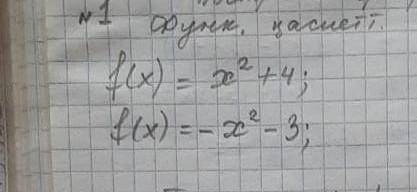 №1 Функ. қасиетт.
f(x) = x² + 4;
f(x) = - x² - 3;